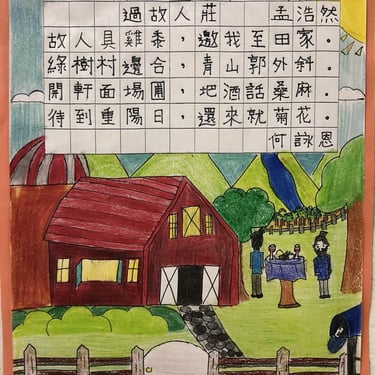 過故人莊 孟浩然
故人具雞黍，邀我至田家。
綠樹村邊合，青山郭外斜。
開軒面場圃，地酒話桑麻。
待到重陽日，還來就菊花。
何詠恩